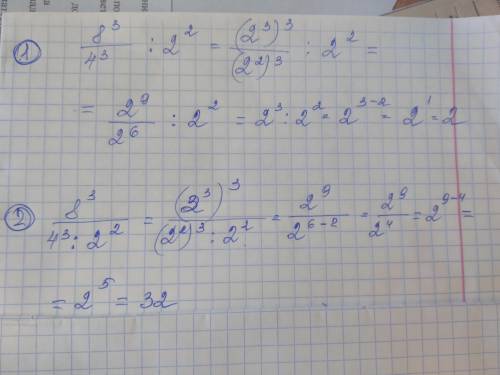 ① 8³/4³ : 2² = (2³)³/(2²)³ : 2² =
= 2⁹/2⁶ : 2² = 2³ : 2² = 2³⁻² = 2¹ = 2
② 8³/4³ : 2² = (2³)³/(2²)³ : 2² = 2⁹/2⁶⁻² = 2⁹/2⁴ = 2⁹⁻⁴ =
= 2⁵ = 32